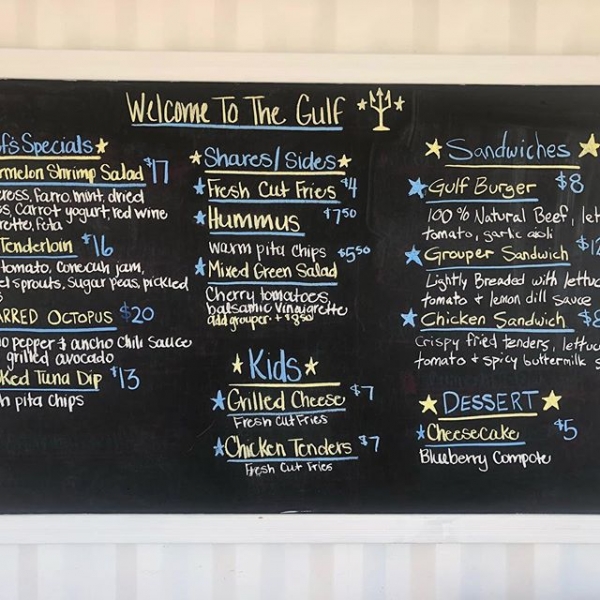 Welcome To The Gulf
Specials
Shrimp Salad $17
Farro, mint, dried
Carrot yogurt red wine
Feta
Tenderloin $16
tomato, conecuh jam,
sprouts, sugar peas, pickled
Octopus $20
pepper & ancho chili sauce
grilled avocado
Tuna Dip $13
pita chips
Shares/Sides
Fresh Cut Fries $4
Hummus $7.50
warm pita chips
Mixed Green Salad $5.50
Cherry tomatoes,
balsamic vinaigrette
add grouper + $8.50
Kids
Grilled Cheese $7
Fresh Cut Fries
Chicken Tenders $7
Fresh Cut Fries
Sandwiches
Gulf Burger $8
100% Natural Beef,
tomato, garlic aioli
Grouper Sandwich
Lightly Breaded with
tomato & lemon dill sauce
Chicken Sandwich
Crispy fried tenders,
tomato & spicy buttermilk
DESSERT
Cheesecake $5
Blueberry Compote